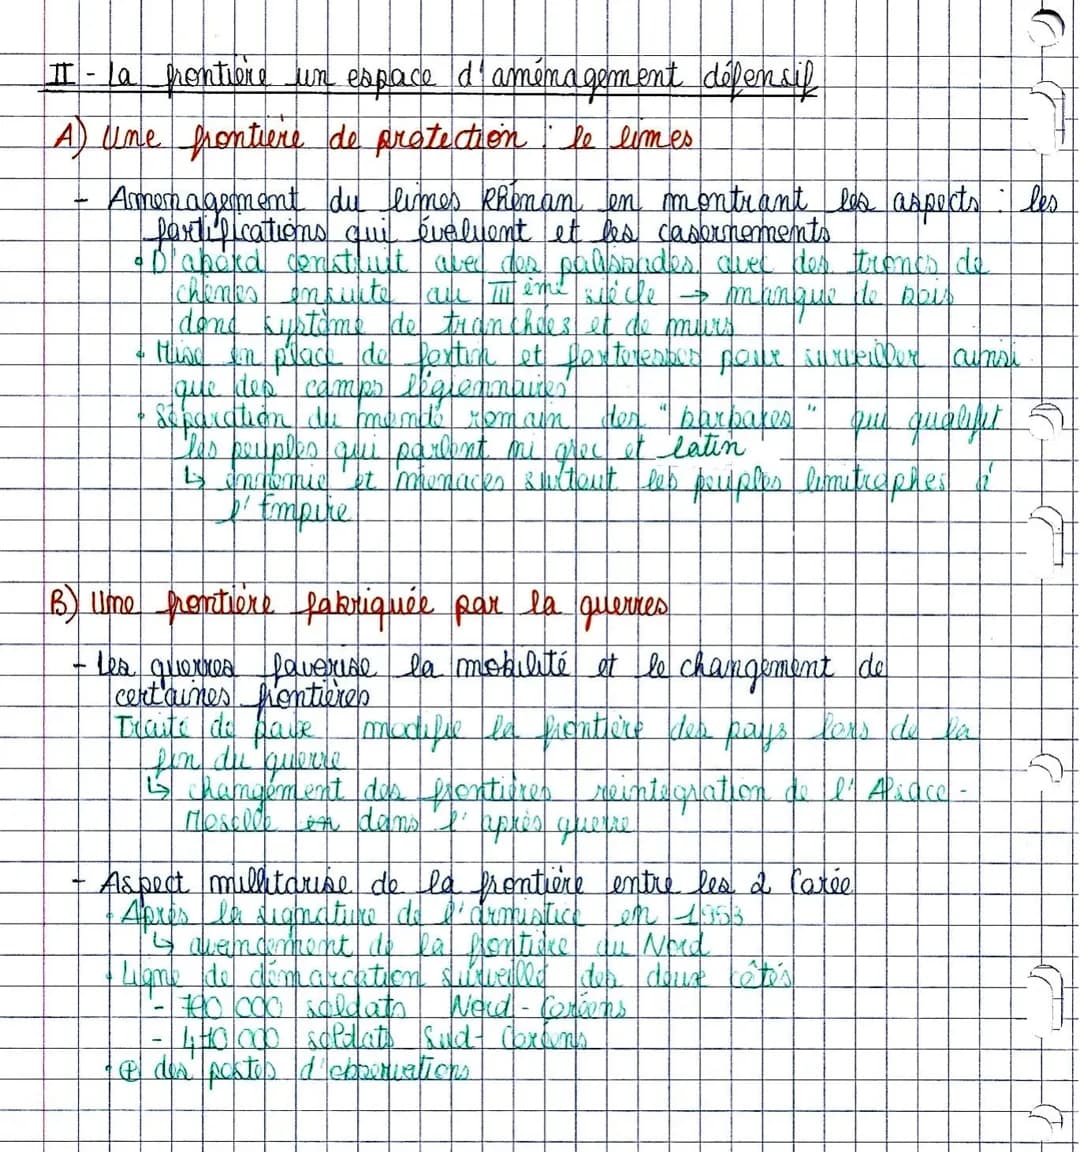 II - La frontière un espace d'aménagement défensif
A) Une frontière de protection : le limes
- Amenagement du limes Rhénan en montrant les aspects : les
fortifications qui évoluent et les casernements
• D'abord construit avec des palissades avec des troncs de
chênes ensuite au IIIème siècle → manque de bois
donc système de tranchées et de murs
• Mise en place de fortin et forteresses pour surveiller ainsi
que des camps légionnaires
• Séparation du monde romain des "barbares" qui qualifit
les peuples qui parlent ni grec et latin
↳ ennemie et menaces surtout les peuples limitrophes à
l'Empire
B) Une frontière fabriquée par la guerres
- Les guerres favorise la mobilité et le changement de
certaines frontières
Traité de paix modifie la frontière des pays lors de la
fin du guerre
↳ changement des frontières reintegration de l'Alsace -
Moselle dans l'après guerre
- Aspect millitarise de la frontière entre les 2 Corée
• Après la signature de l'armistice en 1953
↳ avancement de la frontière du Nord
• Ligne de démarcation surveillé des deux côtés
- 700 000 soldats Nord-Coréens
- 410 000 soldats Sud-Coréens
• ⊕ des postes d'observations